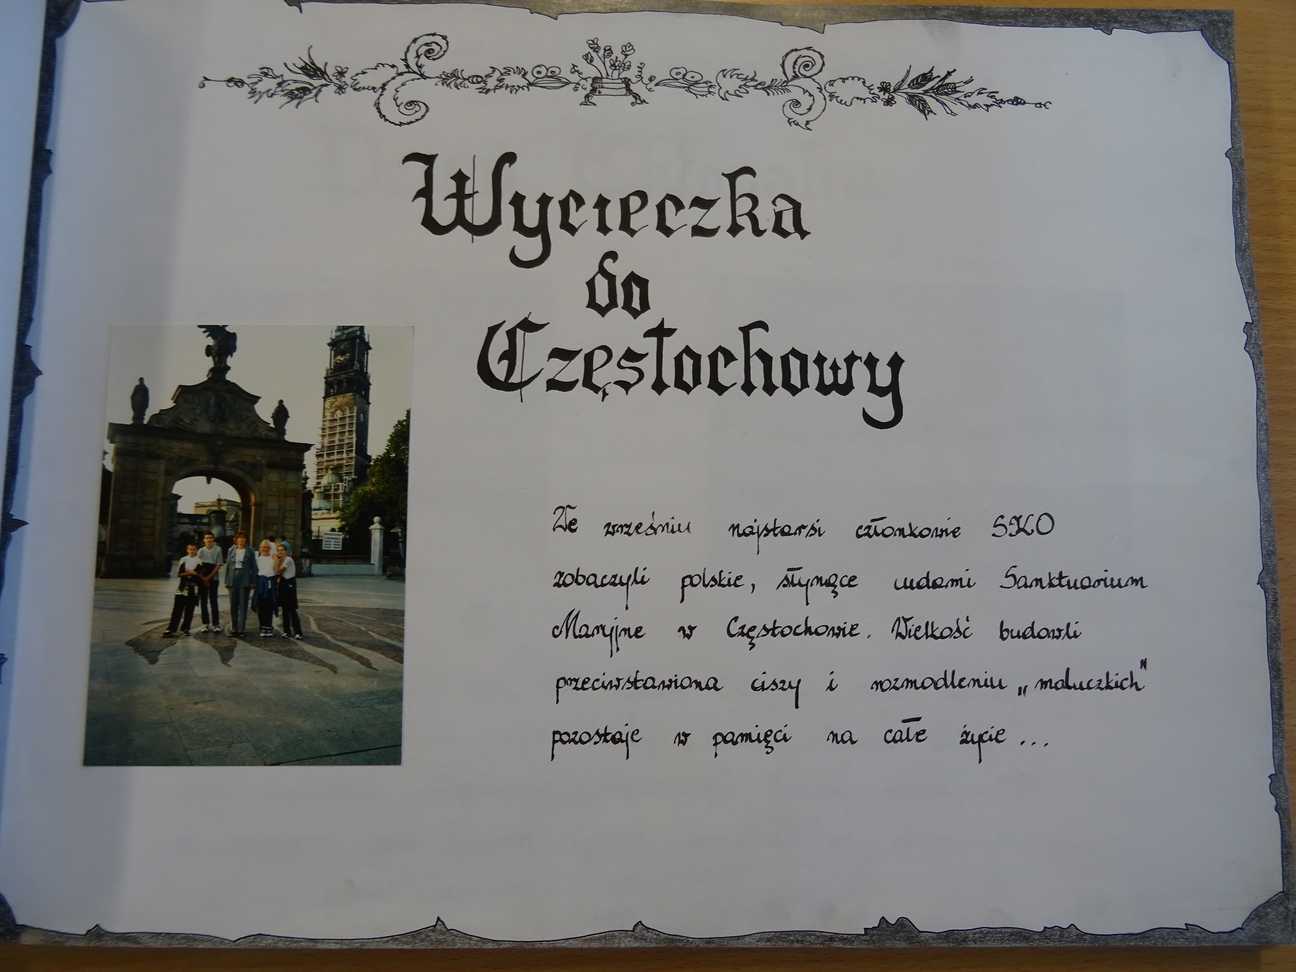 Wycieczka
do
Częstochowy
We wrześniu najstarsi członkowie SKO
zobaczyli polskie, słynące cudami Sanktuarium
Maryjne w Częstochowie. Wielkość budowli
przeciwstawiona ciszy i rozmodleniu „maluczkich"
pozostaje w pamięci na całe życie...